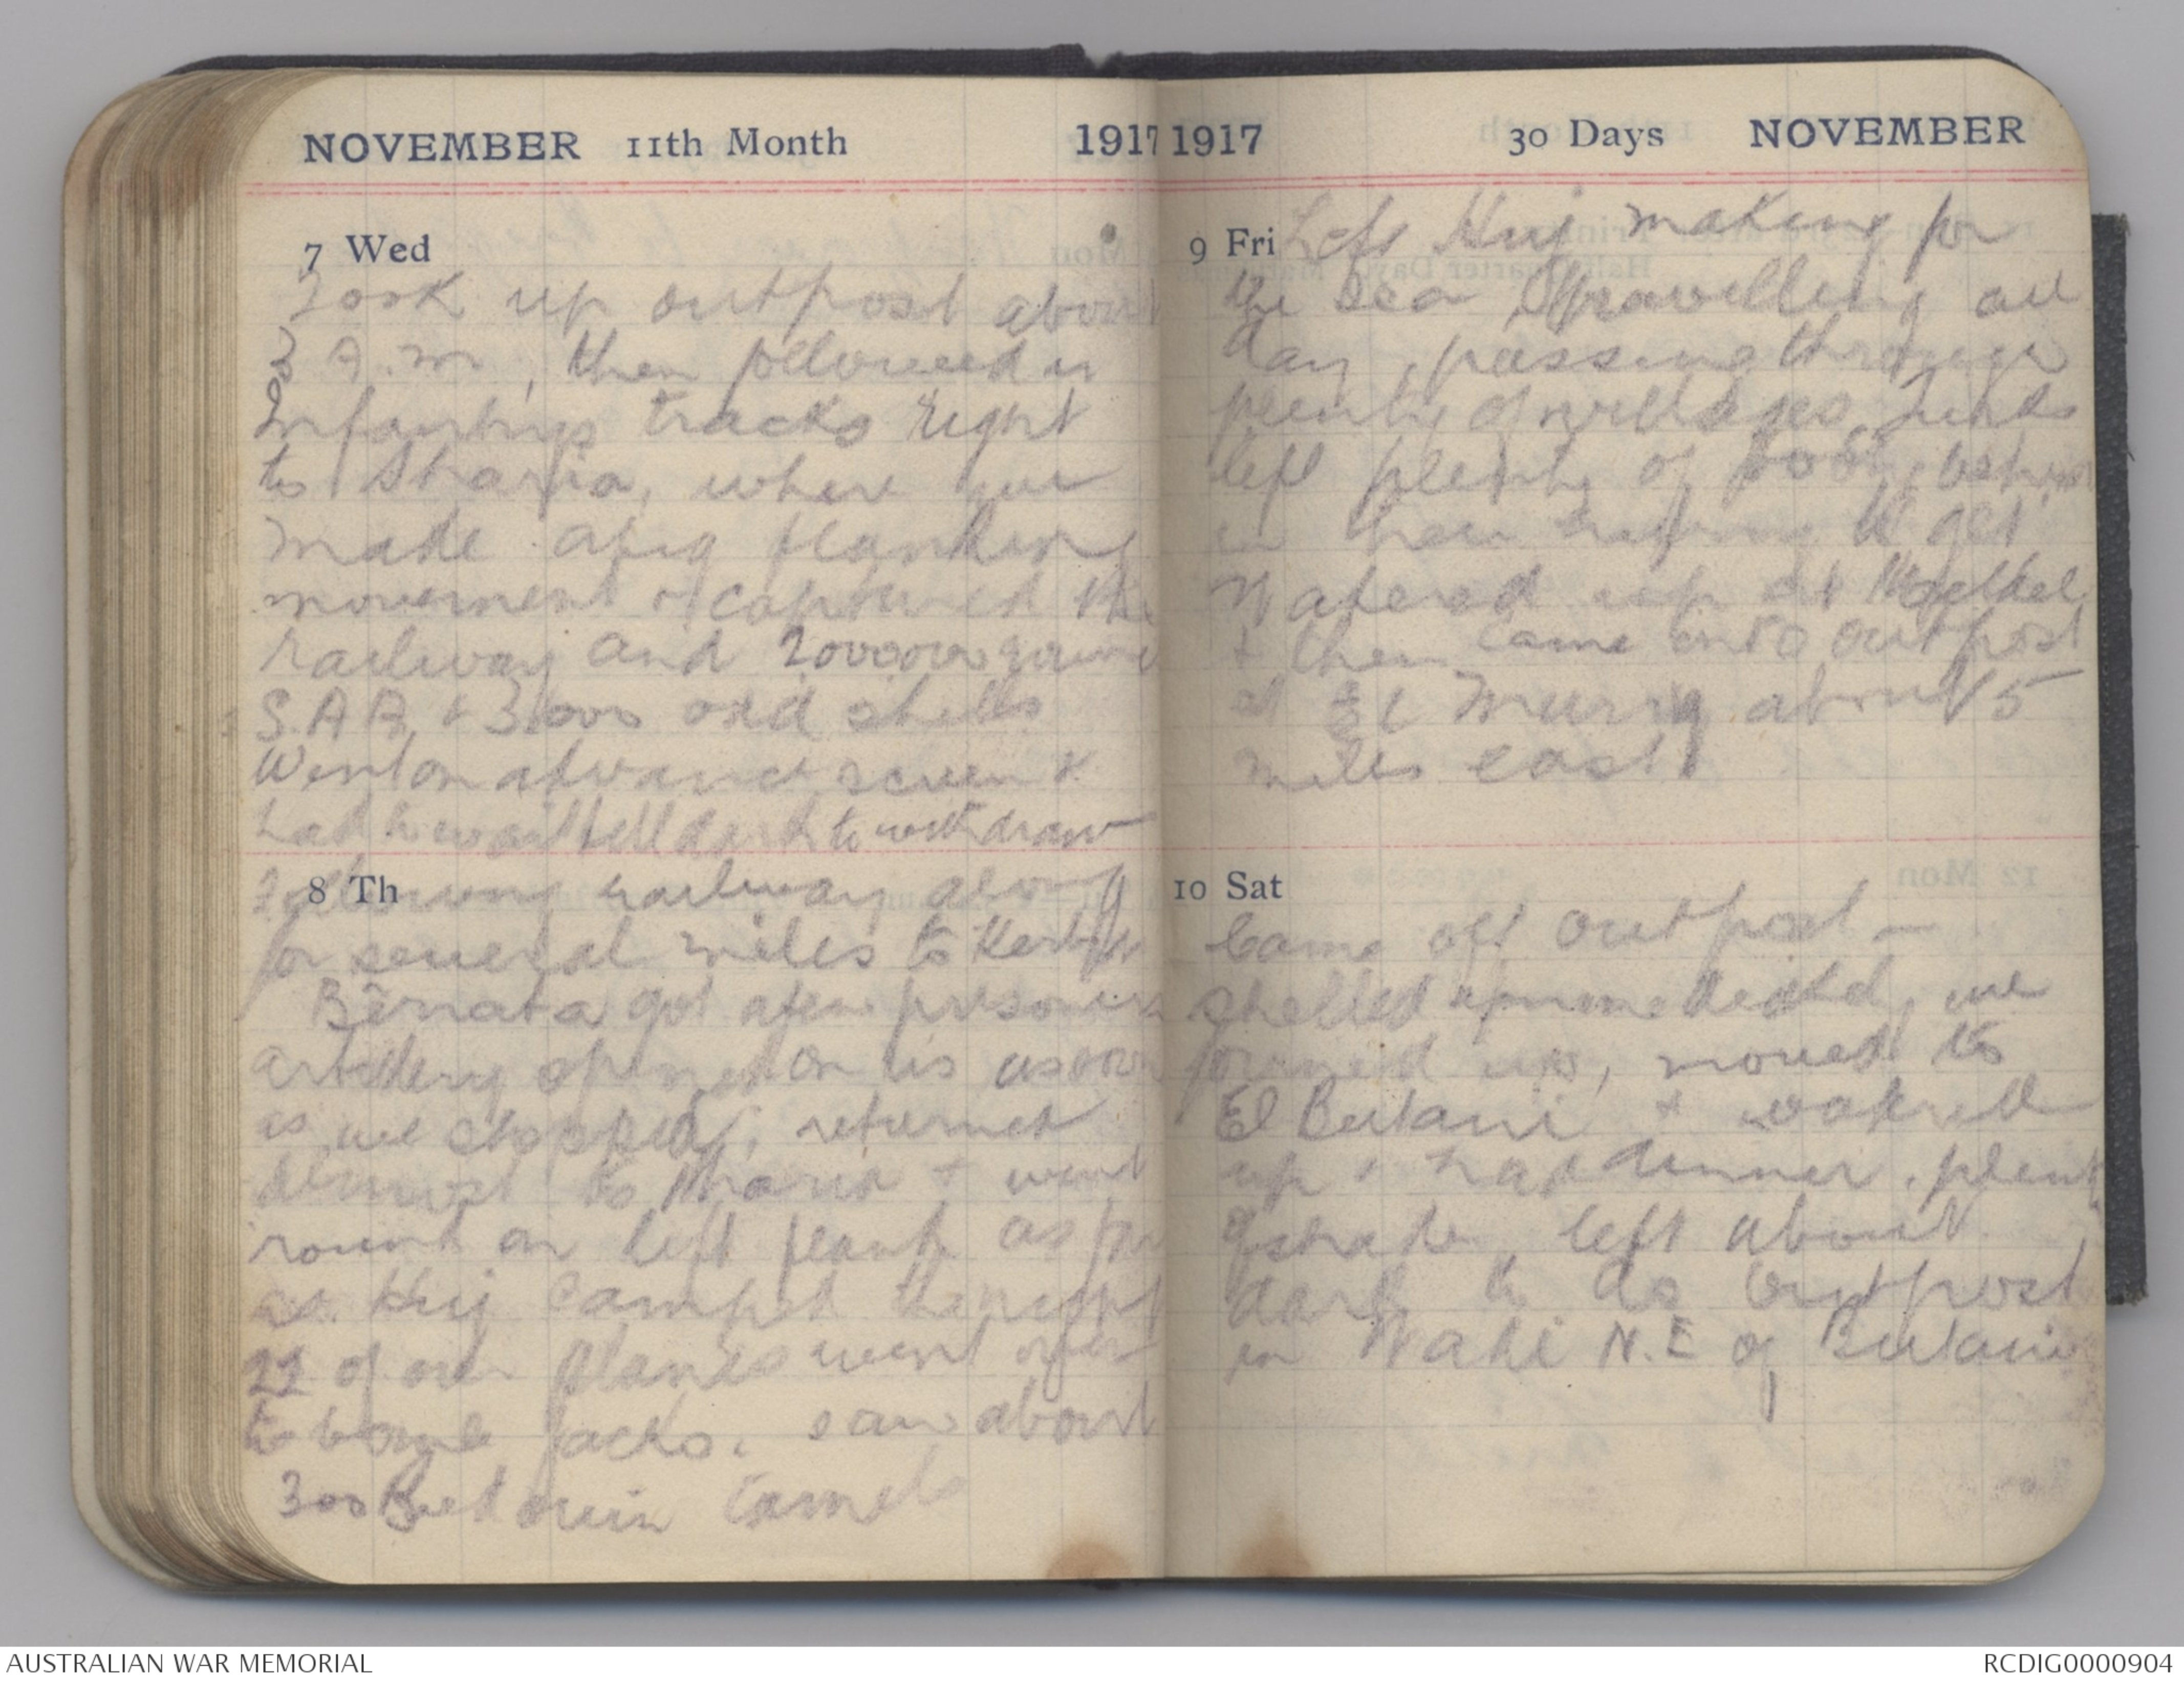 NOVEMBER 11th Month 1917
7 Wed
Took up outpost about
3 A.m, then followed
Infantrys tracks right
to Sharia, where we
made a big flanking
movement & captured the
railway and
S.A.A. & 3,000 odd shells
Went on advance screen &
had to wait till dark to withdraw
8 Th
Following railway along
for several miles to
got a few prisoners
artillery opened on us as soon
as we stopped, returned
almost to Sharia & went
round on left flank as far
as Huj camped the night
22 of our planes went over
to bomb jacko. saw about
300 Bedouin camels
1917 30 Days NOVEMBER
9 Fri Left Huj making for
the sea, travelling all
day, passing through
plenty of villages, Turks
left plenty of
in their hurry to get
Watered up at
& then came onto outpost
at El about 5
miles east
10 Sat
Came off outpost —
shelled we
formed up, moved to
El Butani & watered
up & had dinner, plenty
of shade, left about
dark to do outpost
in Wadi N.E of Butani
AUSTRALIAN WAR MEMORIAL
RCDIG0000904